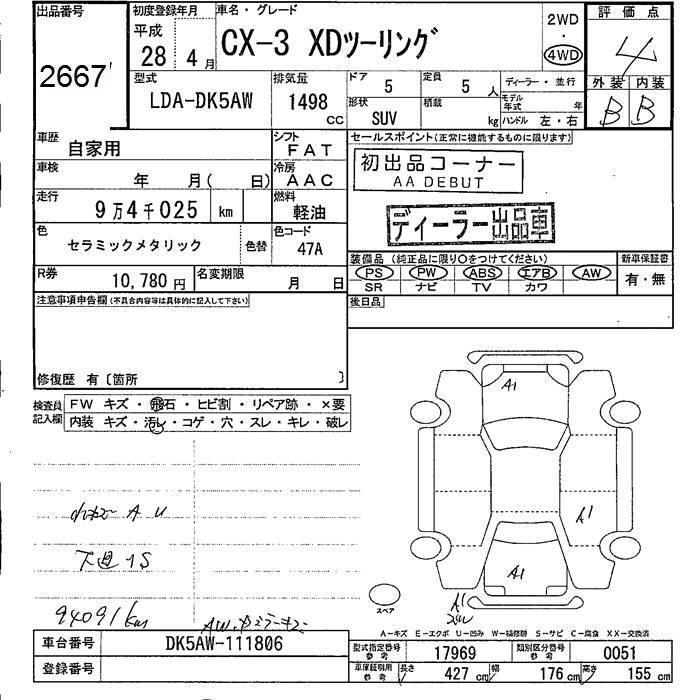 出品番号
2667
初度登録年月
平成
28年 4月
車名・グレード
CX-3 XDツーリング
2WD
・
4WD
評価点
4
外装 内装
B B
型式
LDA-DK5AW
排気量
1498
CC
ドア 5
定員 5 人
ディーラー・並行
形状 SUV
積載 kg
モデル年式 年
ハンドル 左・右
車歴
自家用
シフト
FAT
セールスポイント(正常に機能するものに限ります)
車検
年 月( 日)
冷房
AAC
初出品コーナー
AA DEBUT
走行
9万4千025 km
燃料
軽油
ディーラー出品車
色
セラミックメタリック
色替
色コード
47A
装備品 (純正品に限り○をつけてください)
新車保証書
PS PW ABS エアB AW
有・無
SR ナビ TV カワ
R券
10,780円
名変期限
月 日
後日品
注意事項申告欄(不具合内容等は具体的に記入して下さい)
修復歴 有〔箇所 〕
検査員記入欄
FW キズ・飛石・ヒビ割・リペア跡・×要
内装 キズ・汚レ・コゲ・穴・スレ・キレ・破レ
A1
A U
A1
下廻1S
A1
94091km
スペア
A1
A-キズ E-エクボ U-凹み W-補修跡 S-サビ C-腐食 XX-交換済
車台番号
DK5AW-111806
登録番号
型式指定番号
参考
17969
類別区分番号
参考
0051
車庫証明用
参考
長さ 427 cm
幅 176 cm
高さ 155 cm